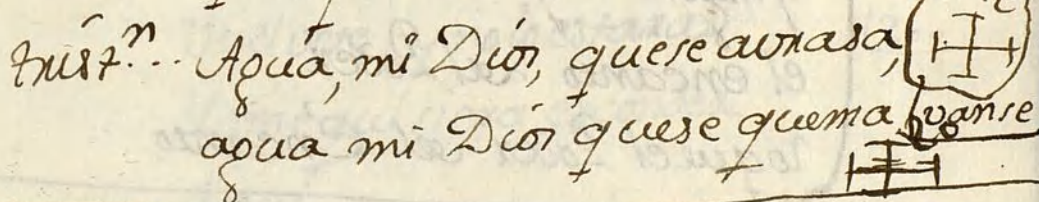 trist.n.. Agua, mi Dios, quese aurasa,
agua mi Dios quese quema vanse